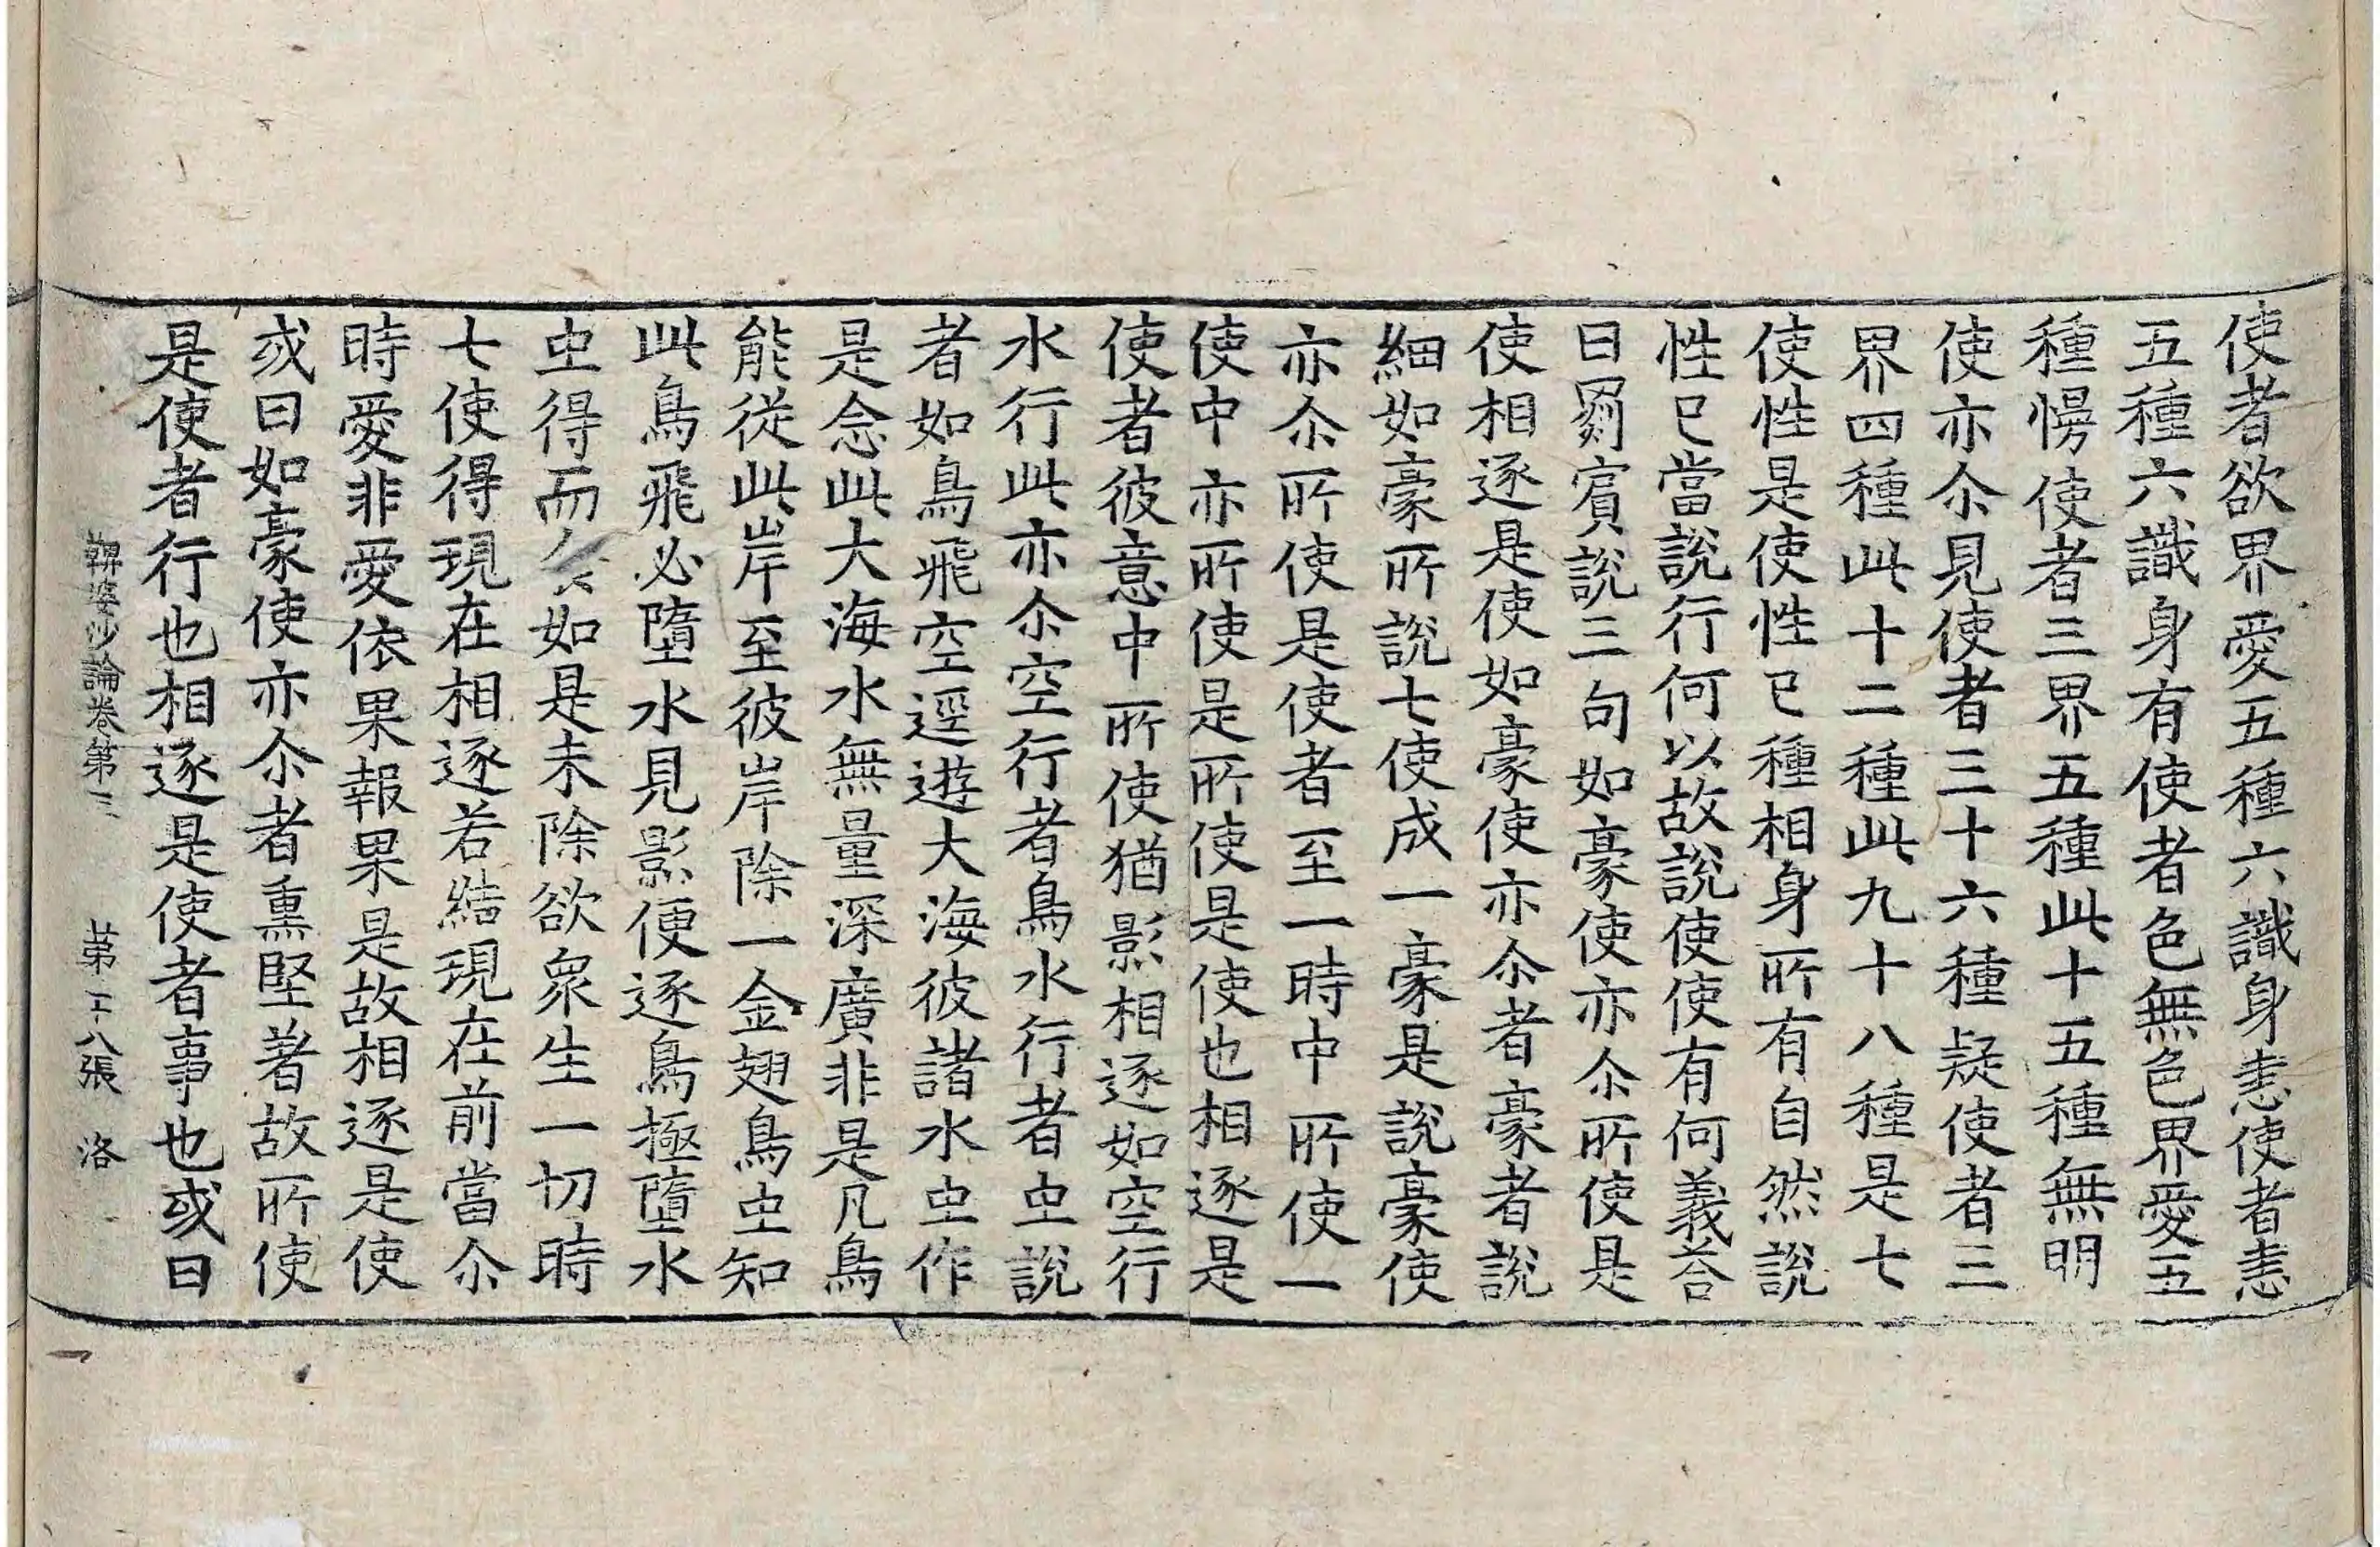 使者欲界愛五種六識身恚使者恚
五種六識身有使者色無色界愛五
種慢使者三界五種此十五種無明
使亦尒見使者三十六種疑使者三
界四種此十二種此九十八種是七
使性是使性已種相身所有自然說
性已當說行何以故說使使有何義荅
曰罽賔說三句如豪使亦尒所使是
使相逐是使如豪使亦尒者豪者說
細如豪所說七使成一豪是說豪使
亦尒所使是使者至一時中所使一
使中亦所使是所使是使也相逐是
使者彼意中所使猶影相逐如空行
水行此亦尒空行者鳥水行者虫說
者如鳥飛空逕遊大海彼諸水虫作
是念此大海水無量深廣非是凡鳥
能從此岸至彼岸除一金翅鳥虫知
此鳥飛必墮水見影便逐鳥極墮水
虫得而如是未除欲衆生一切時
七使得現在相逐若結現在前當尒
時愛非愛依果報果是故相逐是使
或曰如豪使亦尒者熏堅著故所使
是使者行也相逐是使者事也或曰
鞞婆沙論卷第三 苐二十八張 洛